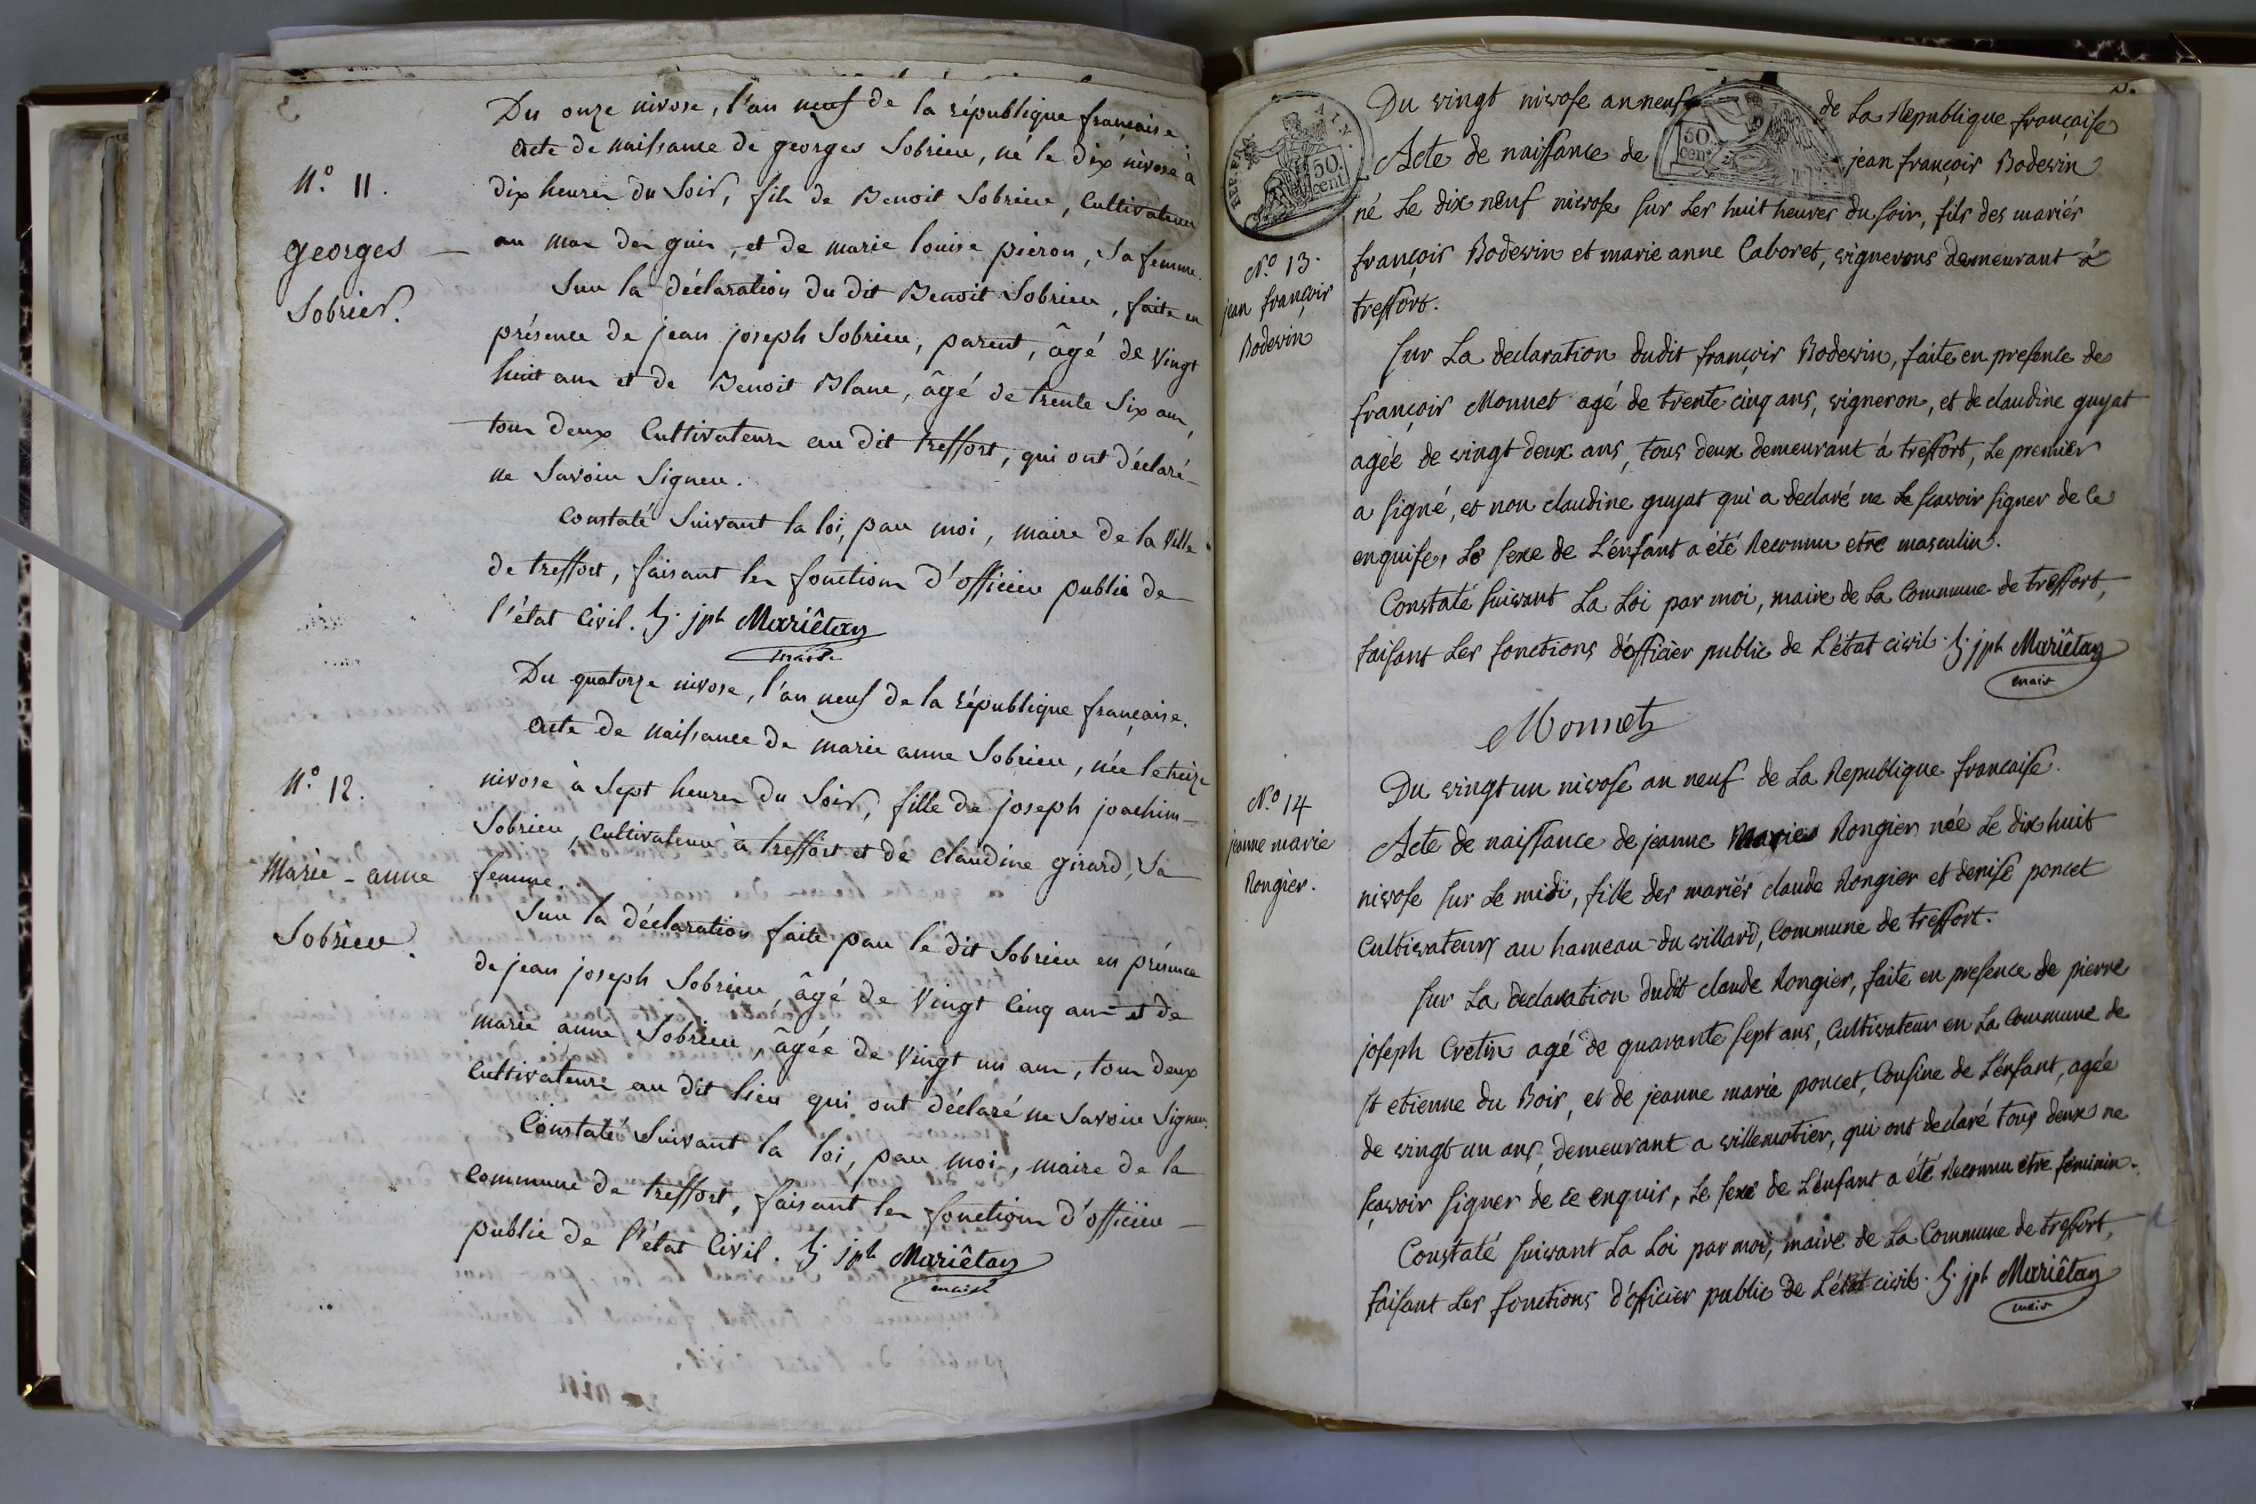 Du onze nivose, l'an neuf de la république française.
N.° 11.
georges
Sobrier.
acte de naissance de georges Sobrier, né le dix nivose à
dix heures du Soir, fils de Benoit Sobrier, Cultivateur
au mas des guis, et de marie louise pieron, Sa femme.
Sur la déclaration du dit Benoit Sobrier, faite en
présence de jean joseph Sobrier, parent, âgé de Vingt
huit ans et de Benoit Blanc, âgé de trente Six ans,
tous deux Cultivateurs au dit treffort, qui ont déclaré
ne Savoir Signer.
Constaté Suivant la loi, par moi, maire de la Ville
de treffort, faisant les fonctions d'officier public de
l'état Civil. jph Mariêtan
maire
Du quatorze nivose, l'an neuf de la république française.
N.° 12.
Marie-anne
Sobrier.
acte de naissance de marie anne Sobrier, née le treize
nivose à Sept heures du Soir, fille de joseph joachim
Sobrier, Cultivateur à treffort et de Claudine girard, Sa
femme.
Sur la déclaration faite par le dit Sobrier en présence
de jean joseph Sobrier, âgé de Vingt Cinq ans et de
marie anne Sobrier, âgée de Vingt un ans, tous deux
Cultivateurs au dit lieu qui ont déclaré ne Savoir Signer.
Constaté Suivant la loi, par moi, maire de la
Commune de treffort, faisant les fonctions d'officier
public de l'état Civil. jph Mariêtan
maire
REP. FRA. AIN.
50. cent.
50. cent.
Du vingt nivose an neuf de La Republique française
N.° 13.
jean françois
Bodevin
Acte de naissance de jean françois Bodevin
né Le dix neuf nivose sur Les huit heures du soir, fils des mariés
françois Bodevin et marie anne Caboret, vignerons demeurant à
treffort.
sur La declaration dudit françois Bodevin, faite en presence de
françois Monnet agé de trente cinq ans, vigneron, et de claudine guyat
agée de vingt deux ans, tous deux demeurant à treffort, Le premier
a signé, et non claudine guyat qui a declaré ne Le sçavoir signer de ce
enquise, Le sexe de L'enfant a été Reconnu etre masculin.
Constaté suivant La Loi par moi, maire de La Commune de treffort,
faisant Les fonctions d'officier public de L'état civil. jph Mariêtan
maire
Monnet
Du vingt un nivose an neuf de La Republique française.
N.° 14
jeanne marie
Rongier.
Acte de naissance de jeanne Marie Rongier née Le dix huit
nivose sur Le midi, fille des mariés claude Rongier et denise poncet
Cultivateurs au hameau du villard, Commune de treffort.
sur La declaration dudit claude Rongier, faite en presence de pierre
joseph Cretin agé de quarante sept ans, Cultivateur en La Commune de
st etienne du Bois, et de jeanne marie poncet, Cousine de L'enfant, agée
de vingt un ans, demeurant a villemotier, qui ont declaré tous deux ne
sçavoir signer de ce enquis, Le sexe de L'enfant a été Reconnu etre feminin.
Constaté suivant La Loi par moi, maire de La Commune de treffort,
faisant Les fonctions d'officier public de L'état civil. jph Mariêtan
maire